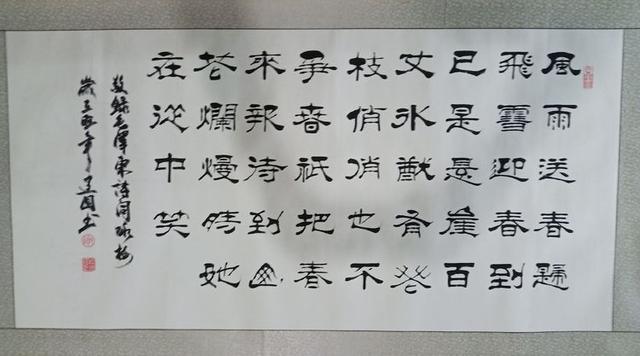 風雨送春歸
飛雪迎春到
已是悬崖百
丈冰猷有花
枝俏俏也不
爭春祇把春
來報待到山
花爛熳時她
在從中笑
敬錄毛澤東詩詞咏梅
歲年国书